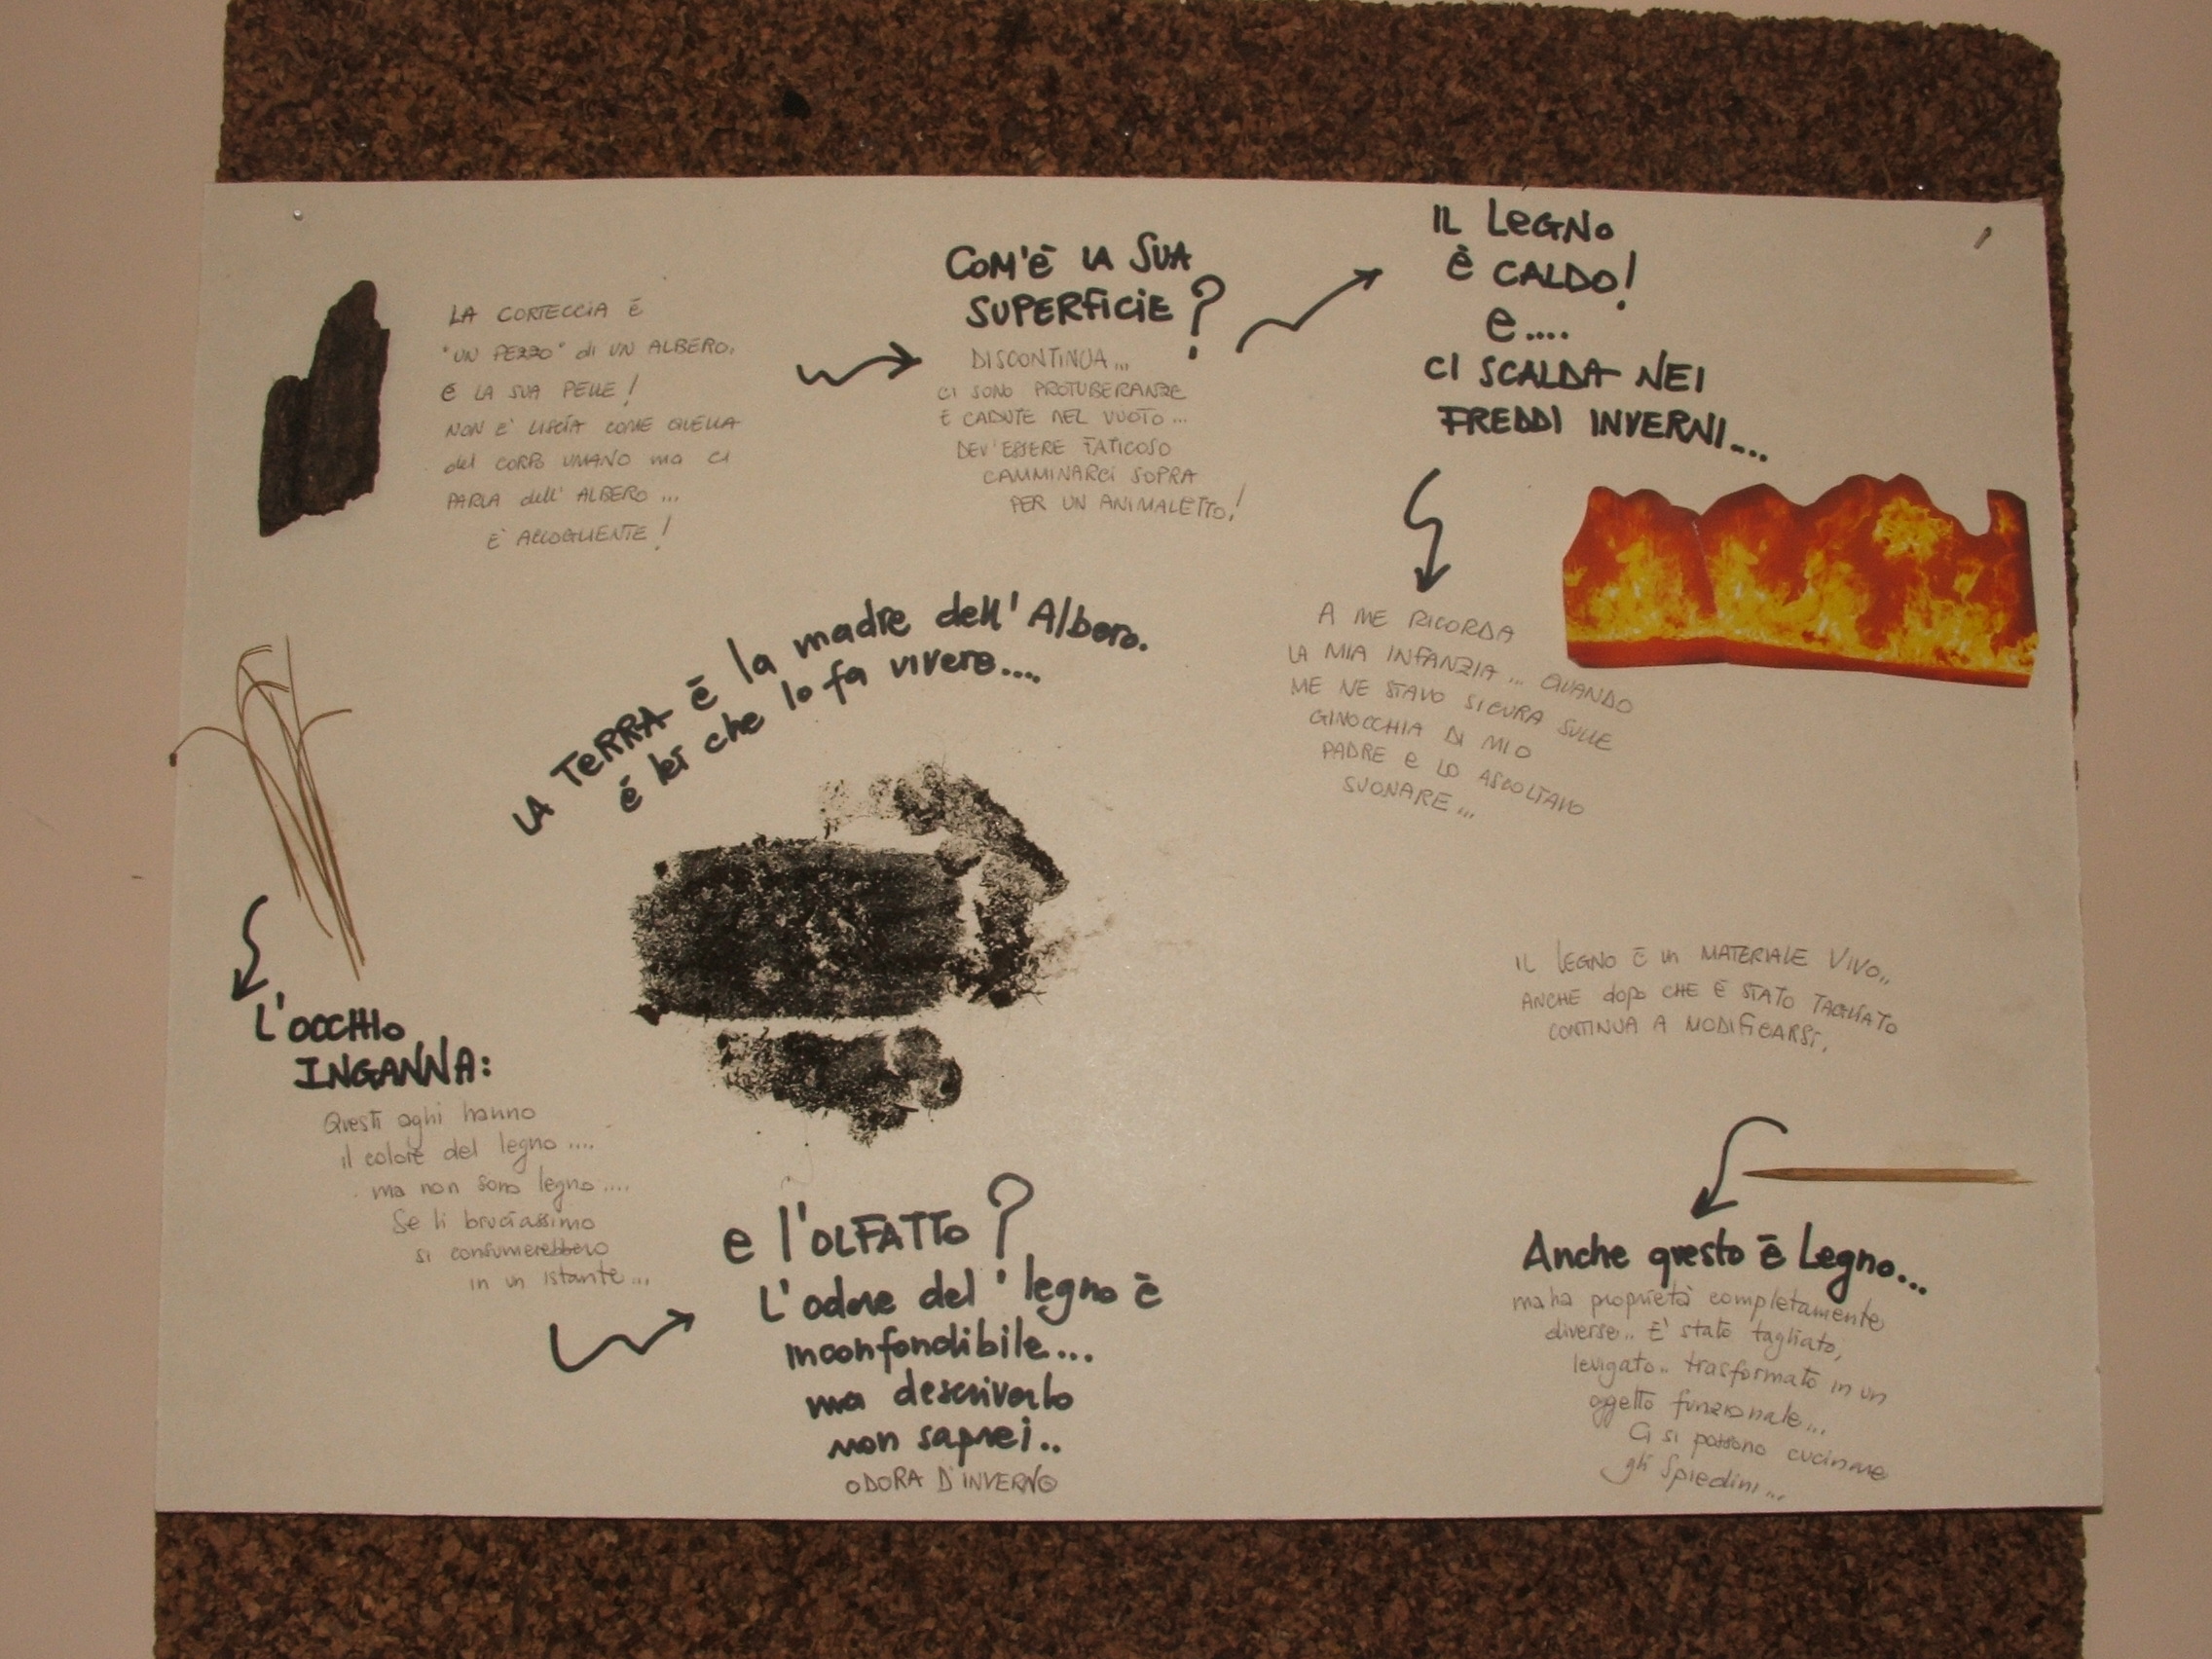 LA CORTECCIA È
"UN PEZZO" di UN ALBERO.
È LA SUA PELLE!
NON E' LISCIA COME QUELLA
del CORPO UMANO ma CI
PARLA dell' ALBERO...
È ACCOGLIENTE!
COM'È LA SUA
SUPERFICIE?
DISCONTINUA...
CI SONO PROTUBERANZE
E CADUTE NEL VUOTO...
DEV'ESSERE FATICOSO
CAMMINARCI SOPRA
PER UN ANIMALETTO!
IL LEGNO
È CALDO!
e....
CI SCALDA NEI
FREDDI INVERNI...
A ME RICORDA
LA MIA INFANZIA... QUANDO
ME NE STAVO SICURA SULLE
GINOCCHIA DI MIO
PADRE e LO ASCOLTAVO
SUONARE...
LA TERRA è la madre dell'Albero.
é lei che lo fa vivere....
L'OCCHIO
INGANNA:
Questi aghi hanno
il colore del legno....
ma non sono legno....
Se li bruciassimo
si consumerebbero
in un istante...
e l'OLFATTO?
L'odore del' legno è
inconfondibile...
ma descriverlo
non saprei..
ODORA D'INVERNO
IL LEGNO È un MATERIALE VIVO..
ANCHE dopo CHE È STATO TAGLIATO
CONTINUA A MODIFICARSI.
Anche questo è Legno...
ma ha proprietà completamente
diverse.. E' stato tagliato,
levigato.. trasformato in un
oggetto funzionale...
Ci si possono cucinare
gli Spiedini...